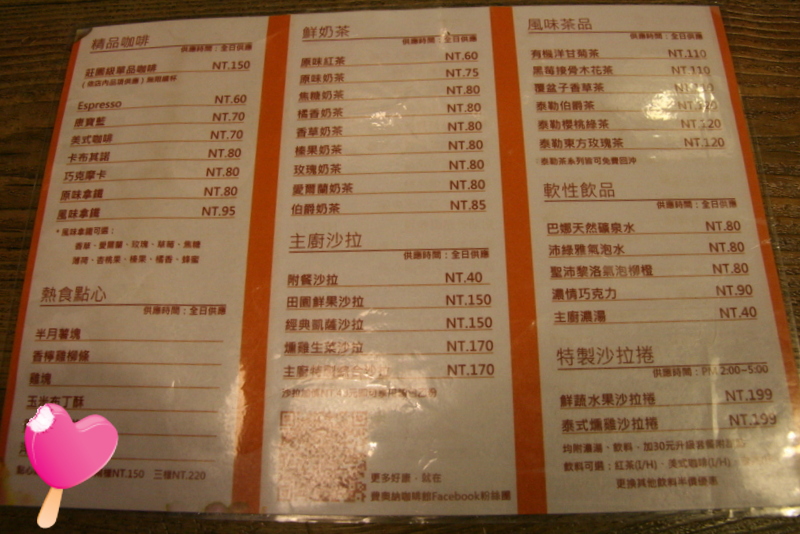 精品咖啡
供應時間：全日供應
莊園級單品咖啡 NT.150
Espresso NT.60
康寶藍 NT.70
美式咖啡 NT.70
卡布其諾 NT.80
巧克摩卡 NT.80
原味拿鐵 NT.80
風味拿鐵 NT.95
*風味拿鐵可選：
香草、愛爾蘭、玫瑰、草莓、焦糖
薄荷、杏桃果、榛果、橘香、蜂蜜
熱食點心
供應時間：全日供應
半月薯塊
香檸雞柳條
雞塊
玉米布丁酥
NT.150 三種NT.220
鮮奶茶
供應時間：全日供應
原味紅茶 NT.60
原味奶茶 NT.75
焦糖奶茶 NT.80
橘香奶茶 NT.80
香草奶茶 NT.80
榛果奶茶 NT.80
玫瑰奶茶 NT.80
愛爾蘭奶茶 NT.80
伯爵奶茶 NT.85
主廚沙拉
供應時間：全日供應
附餐沙拉 NT.40
田園鮮果沙拉 NT.150
經典凱薩沙拉 NT.150
燻雞生菜沙拉 NT.170
主廚特製 NT.170
更多好康，就在
費奧納咖啡館Facebook粉絲團
風味茶品
供應時間：全日供應
有機洋甘菊茶 NT.110
黑莓接骨木花茶 NT.110
覆盆子香草茶
泰勒伯爵茶
泰勒櫻桃綠茶 NT.120
泰勒東方玫瑰茶 NT.120
*泰勒茶系列皆可免費回沖
軟性飲品
供應時間：全日供應
巴娜天然礦泉水 NT.80
沛綠雅氣泡水 NT.80
聖沛黎洛氣泡柳橙 NT.80
濃情巧克力 NT.90
主廚濃湯 NT.40
特製沙拉捲
供應時間：PM 2:00~5:00
鮮蔬水果沙拉捲 NT.199
泰式燻雞沙拉捲 NT.199
均附濃湯、飲料、加30元升級
飲料可選：紅茶(I/H)、美式咖啡(I/H)
更換其他飲料半價優惠